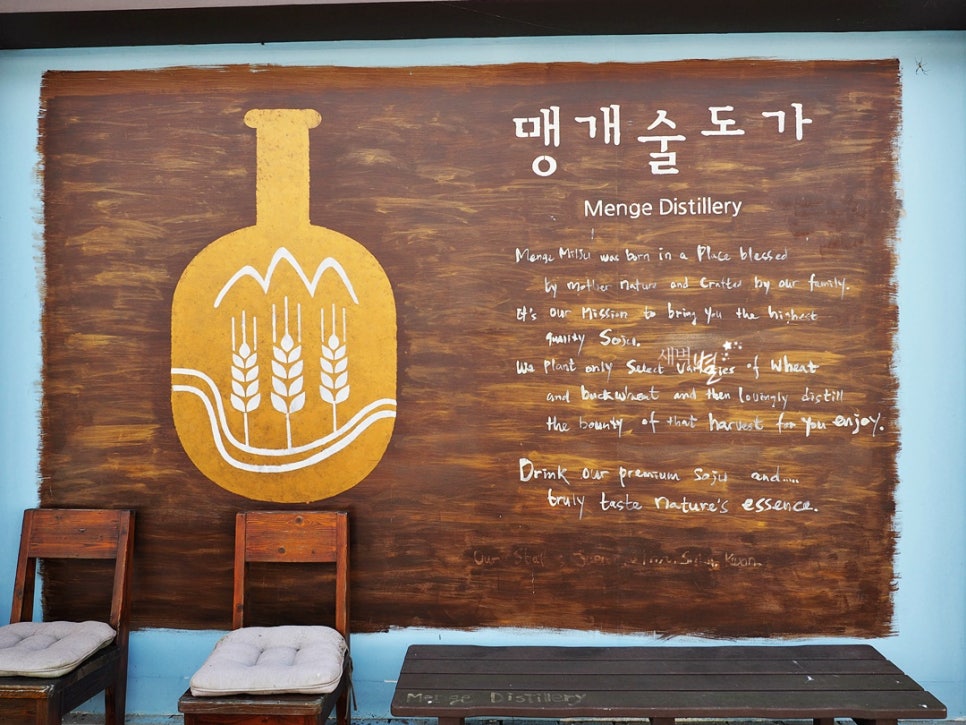 맹개술도가
Menge Distillery
Menge Milju was born in a Place blessed
by mother nature and crafted by our family.
It's our Mission to bring you the highest
quality Soju.
새벽별
We Plant only Select Varieties of Wheat
and buckwheat and then lovingly distill
the bounty of that harvest for you enjoy.
Drink our premium Soju and.....
truly taste nature's essence.
Our
Menge Distillery